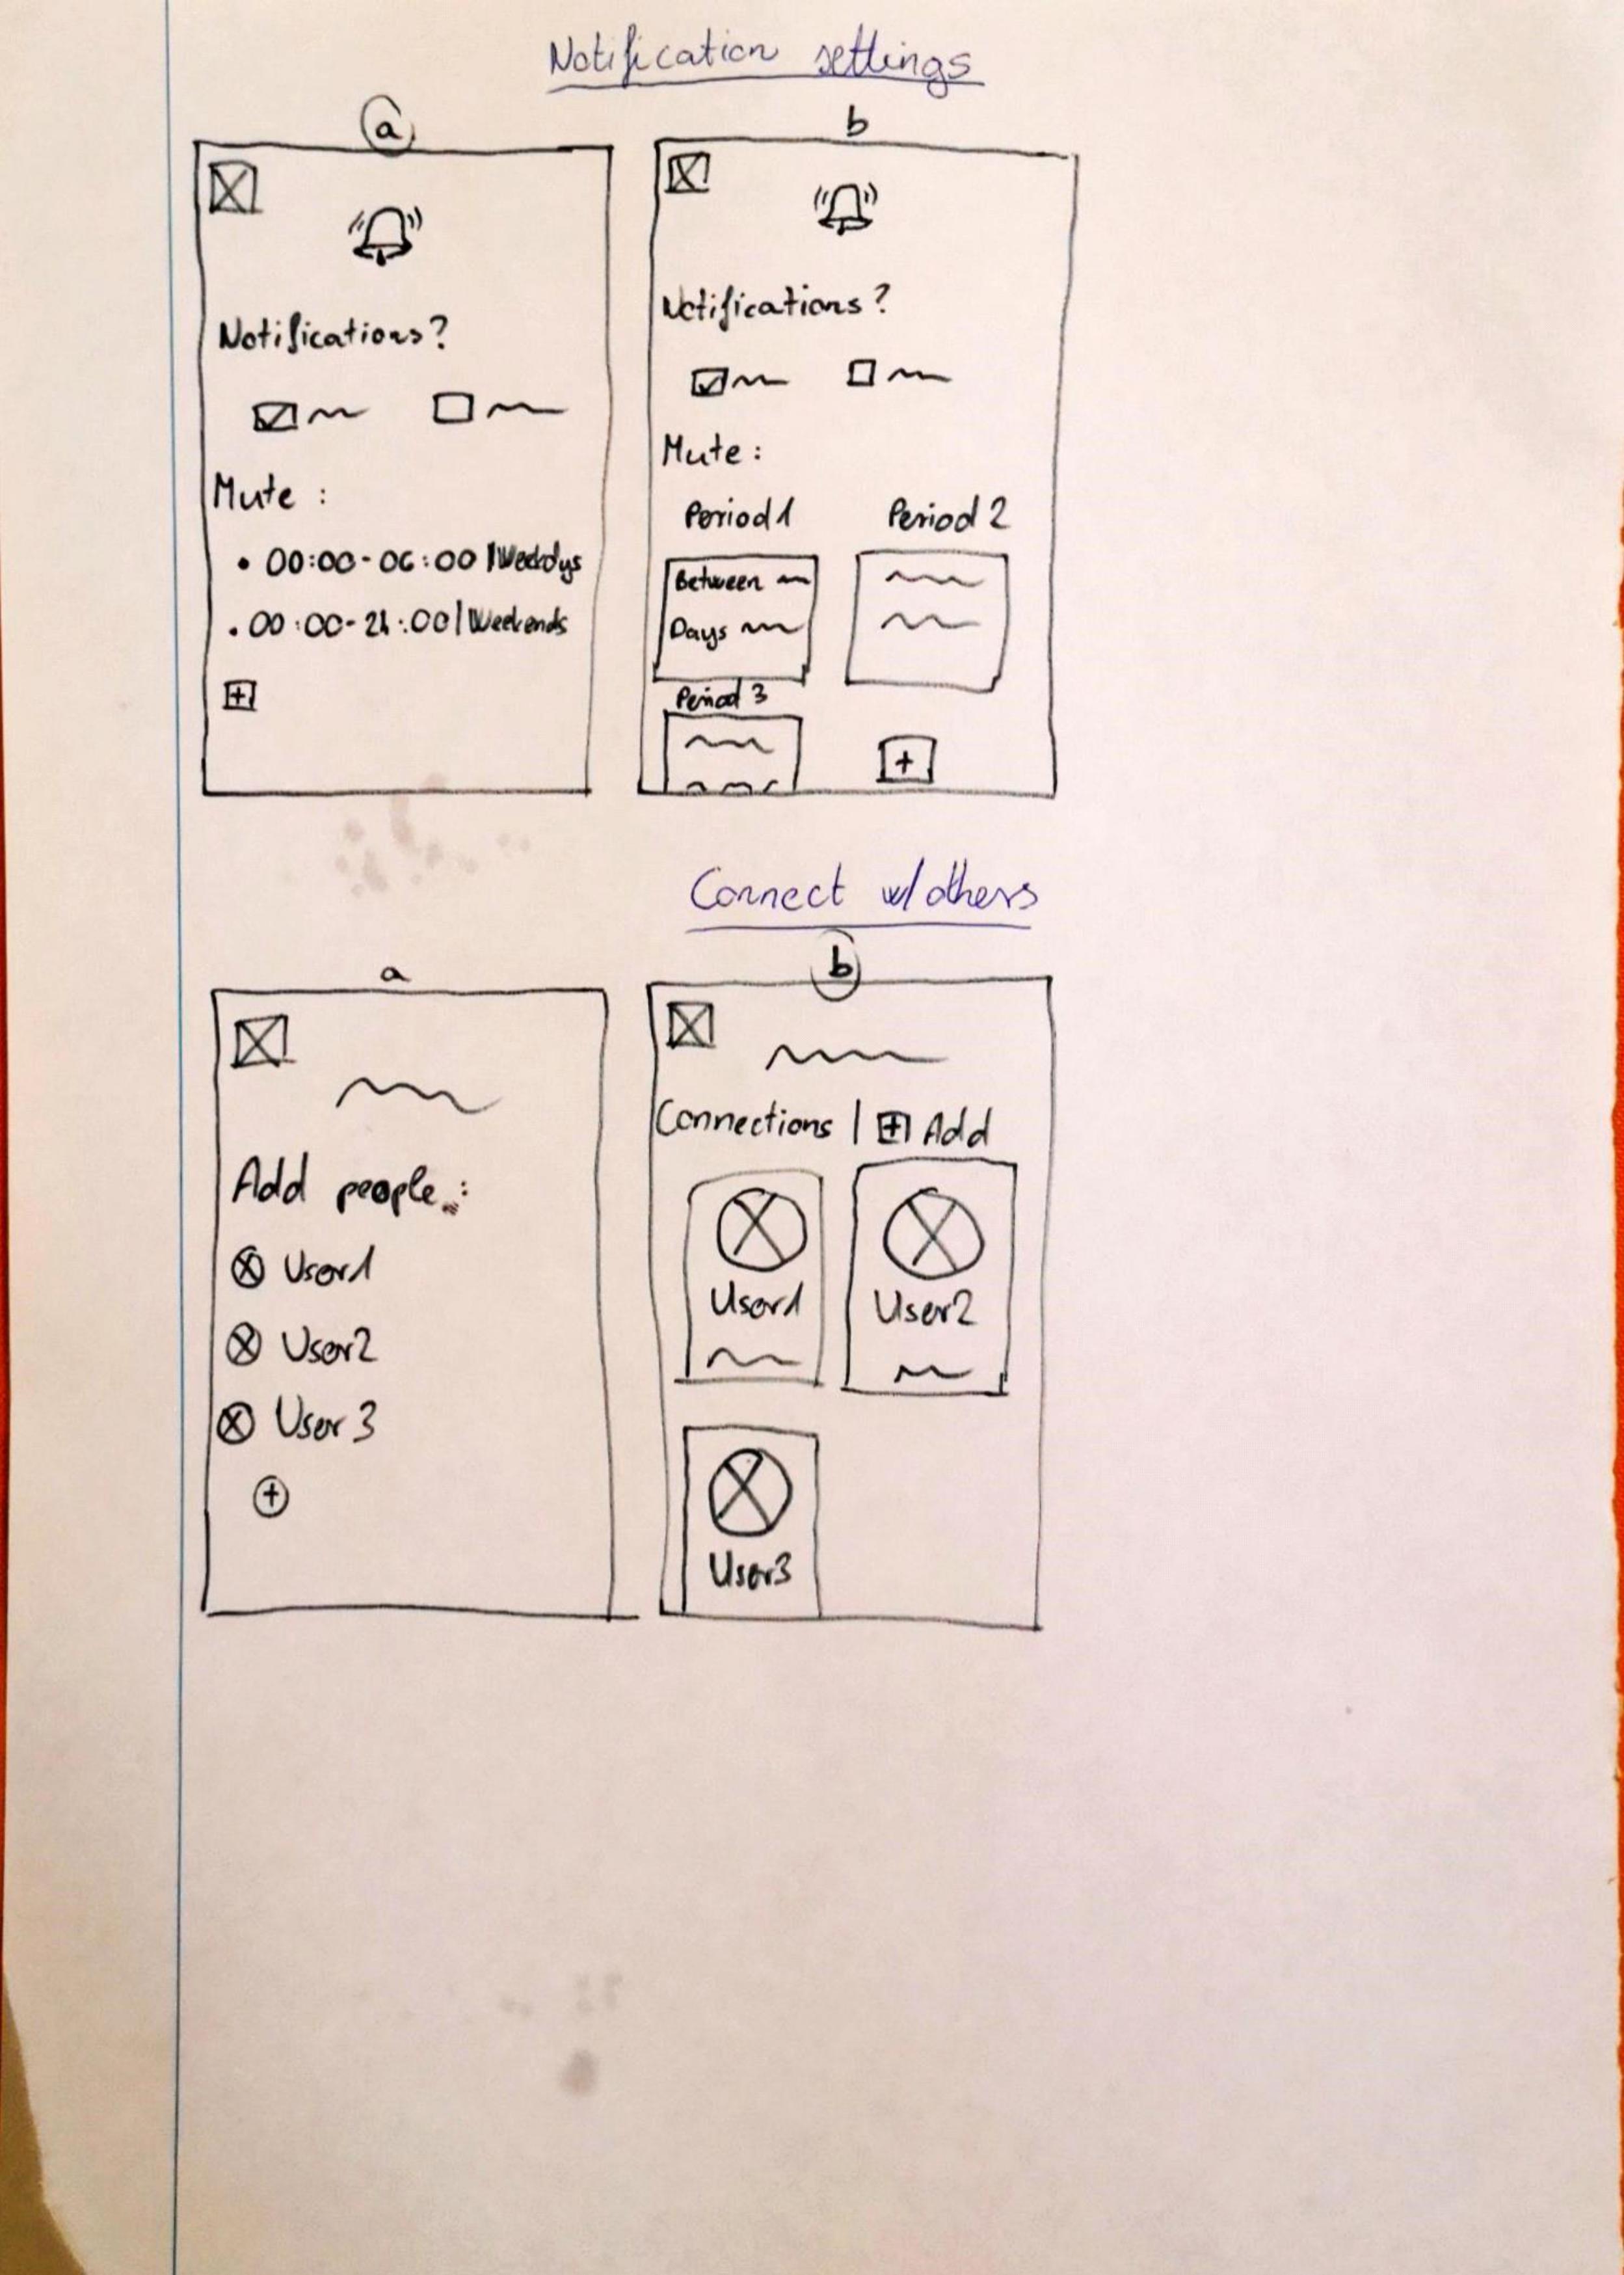 Notification settings
a
Notifications?
Mute :
• 00:00-06:00 | Weekdys
• 00:00-24:00 | Weekends
+
b
Notifications?
Mute :
Period 1 Period 2
Between
Days
Period 3
+
Connect w/ others
a
Add people :
User1
User2
User 3
+
b
Connections | + Add
User1 User2
User3